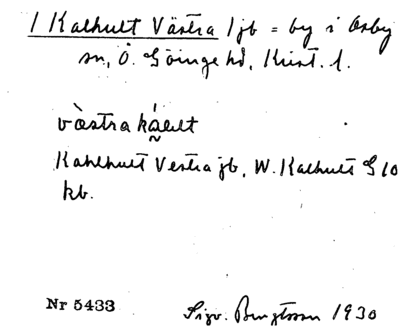 / Kalhult Västra / jb = by i Osby
sn, Ö. Göinge hd, Krist. l.
vä̀stra kálült
Kahlhult Vestra jb, W. Kalhult G 10
kb.
Nr 5433
Sigv. Bengtsson 1930